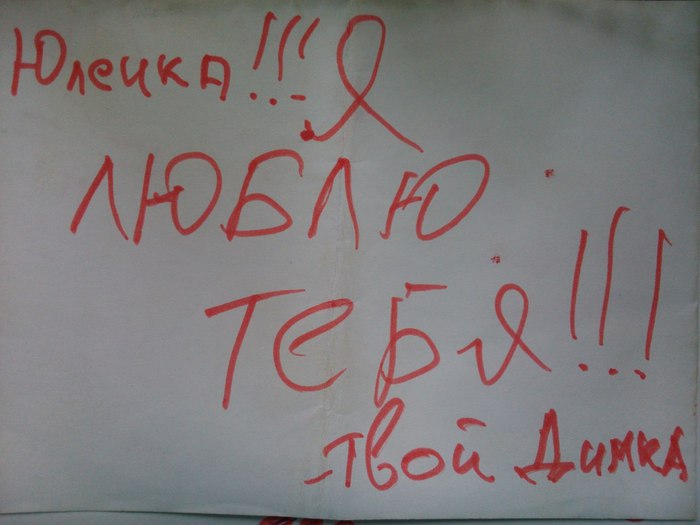 Юлечка!!! Я
ЛЮБЛЮ
ТЕБЯ!!!
твой Димка